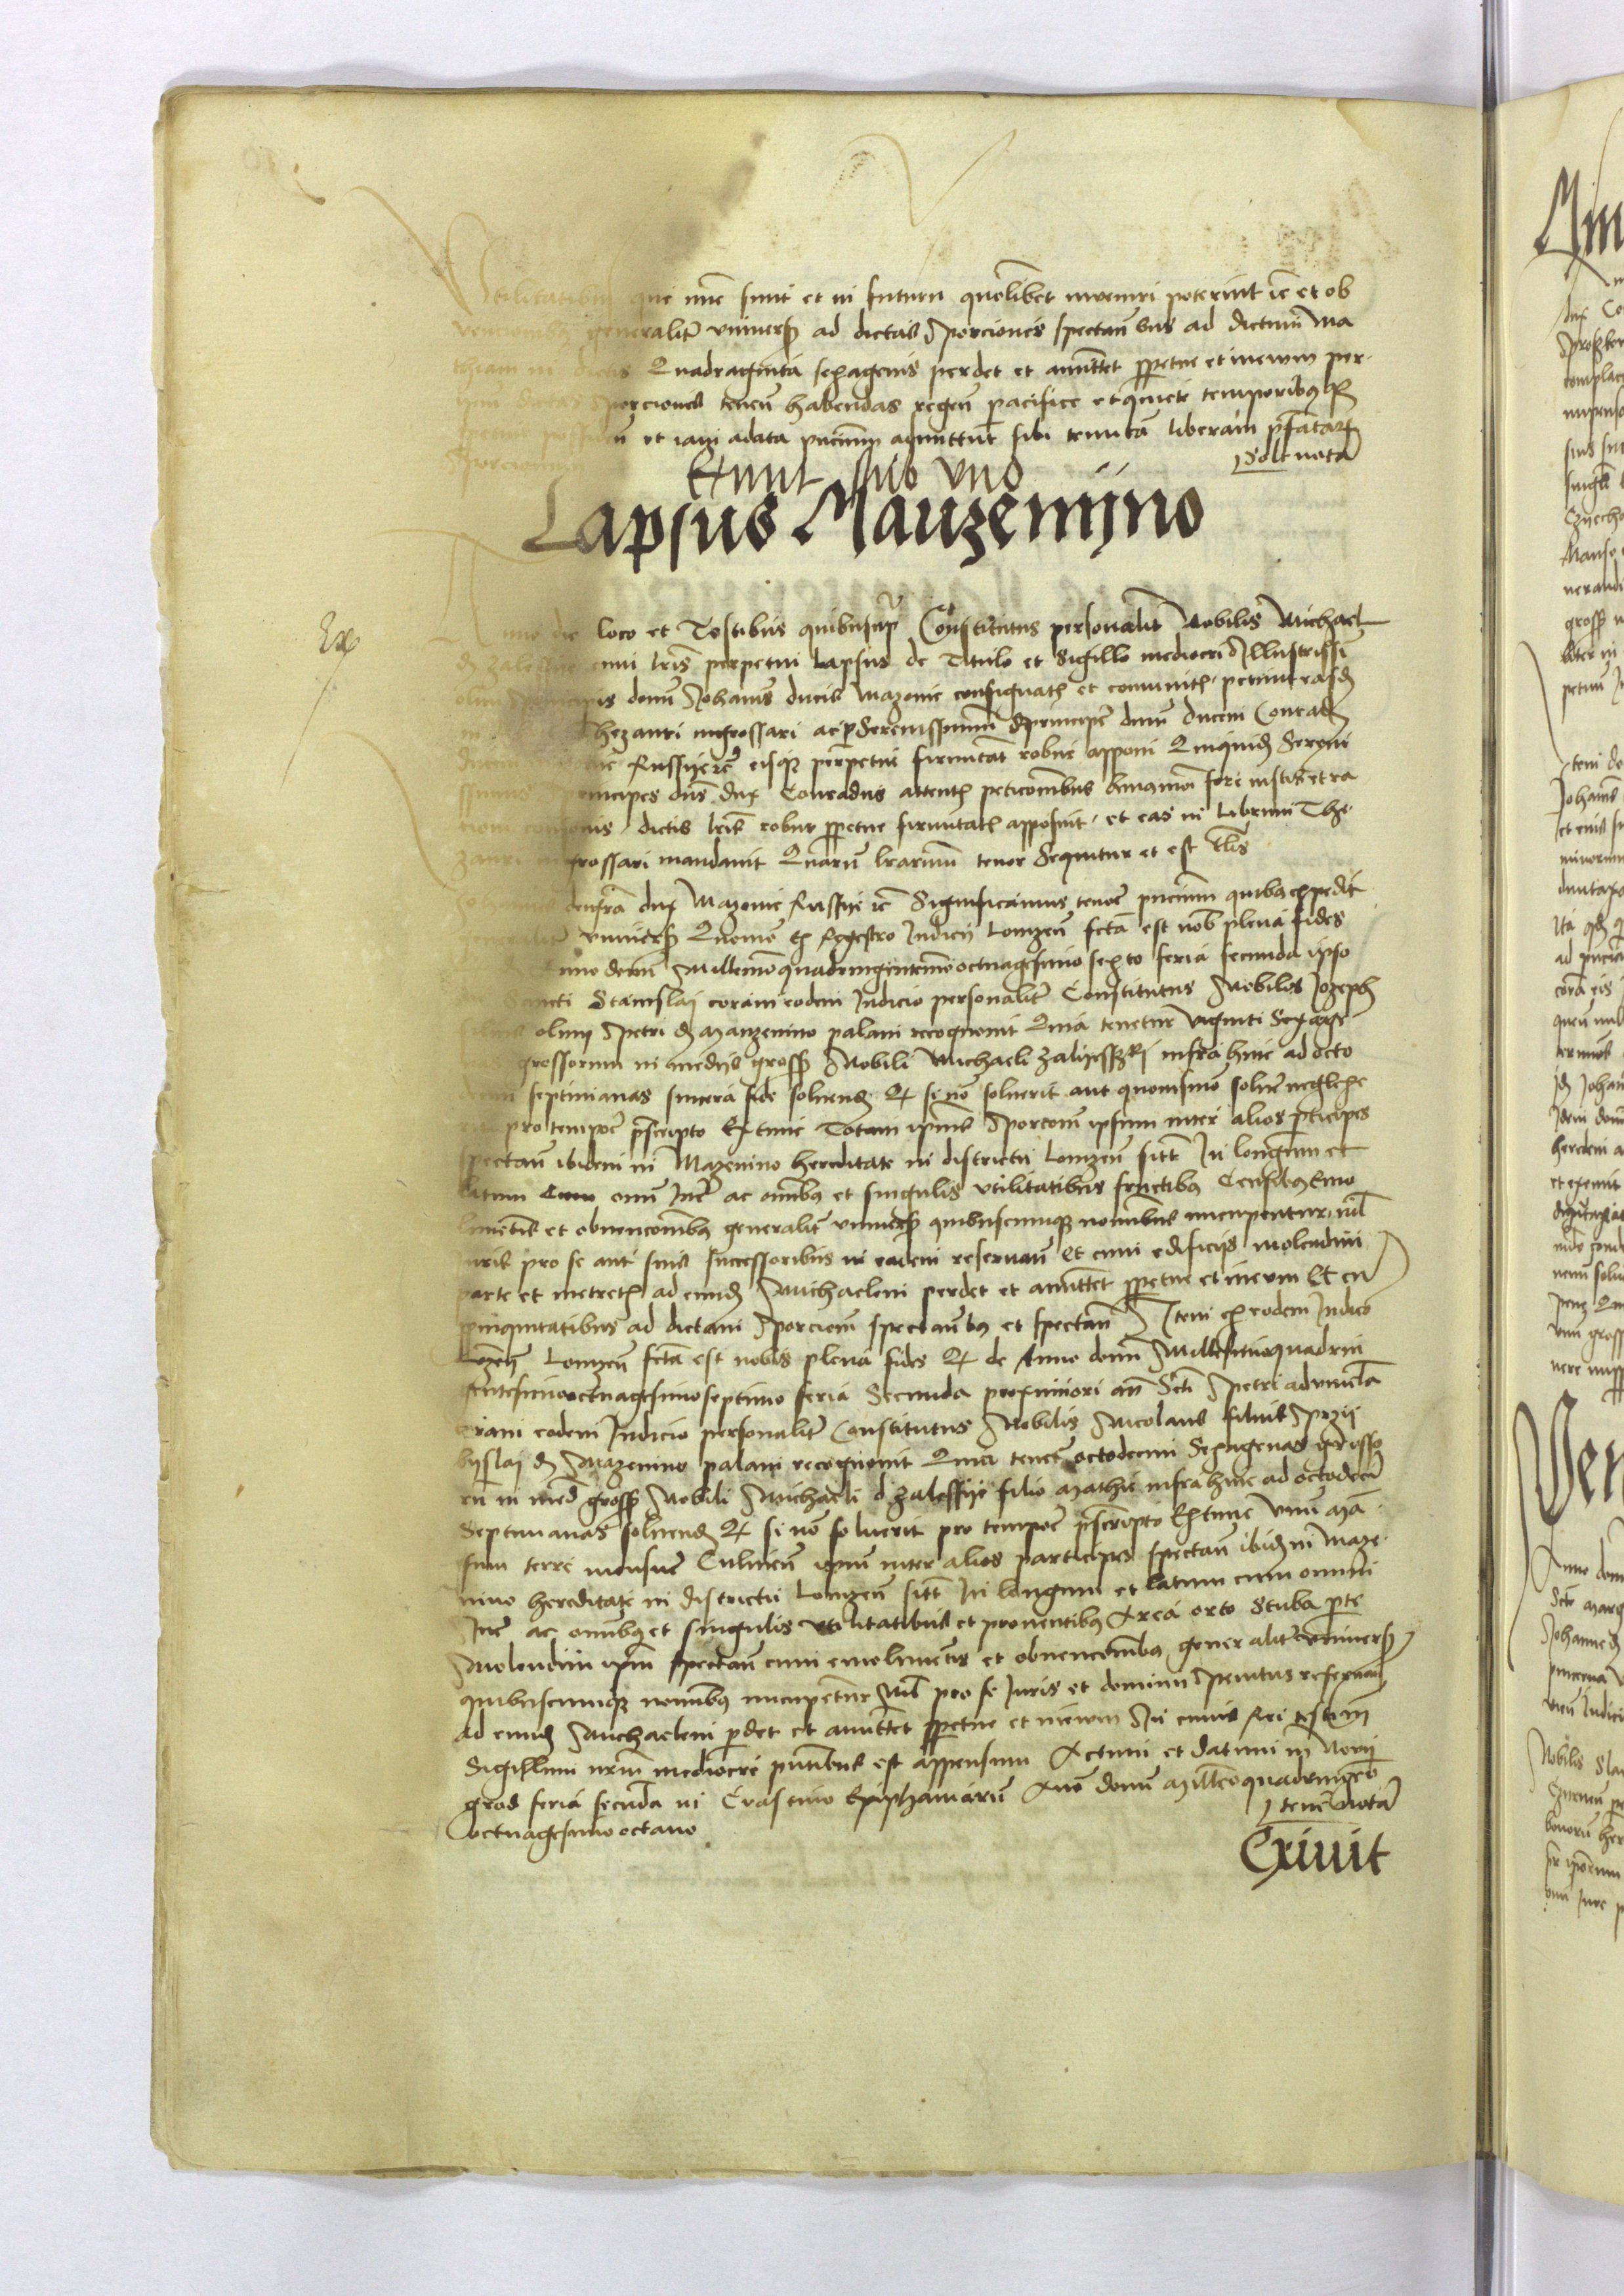 Utilitatibus que nunc sunt et in futuru quolibet inveniri poterint ic et ob
vencionibus generalit univers ad dictas Porciones spectan bus ad dictum Ma
thiam in dictis Quadraginta sexagenis perdet et amittet ppetue et inevum per
ipsm dictas Porciones tenen habendas regen pacifice et quiete temporibus
et iam adata pncium admittunt sibi tenuta liberam pfatar
Porcionum Solt nota
Sunt sub uno
Lapsus Mauzenyno
Ex
Anno die loco et Testibus quibus sup Constitutus personalit Nobilis Michael
d zalessye cum lris perpetui lapsus de Titulo et Sigillo mediocri Illustrissi
olim Principis domi Johanis ducis Mazovie consignat et comunit petivit easd
in Thezauri ingrossari ac p Serenissimum principe dnum ducem Conrad
ducem Russye ic eisque perpetue firmitat robur apponi Quiquid Sereni
ssimus princeps dns dux Conradus attent peticonibus benignon fore iustis et ra
tioni consonis dictis lris robur ppetue firmitat apposuit et eas in Librum The
zauri ingrossari mandavit Quarum lrarum tenor Sequitur et est tlis
dei gra dux Mazovie Russye ic Significamus tenore pncium quibus expedit
generalit univers Quomo ex Regestro Iudicii Lomzen fcta est nob plena fides
Anno domi Millesimo quadringintesimo octuagesimo sexto feria secunda ipso
Sancti Stanislai coram eodem Iudicio personalit Constitutus Nobilis Jozeph
filius olim Petri d Mauzenino palam recognovit Quia tenetur viginti Sexage
grossorum in mediis gross Nobili Michaeli zalyesszky infra hinc ad octo
decim septimanas sincera fide solvend Et si no solverit aut quovismo solve neglexe
rit pro tempore pscripto Extunc Totam ipius Porconem ipsum inter alios pticipes
spectan ibidem in Mazenino hereditate in districtu Lomzen sitt In longum et
latum Cum omi Iure ac omibus et singulis utilitatibus fructibus Censibus Emo
limentis et obvencionibus generalit univers quibuscunque nominibus nuncupentur nil
iuris pro se aut suis successoribus in eadem reservan Et cum edificiis molendini
parte et metret ad eund Michaelem perdet et amittet ppetue et inevum Et cu
ppinquitatibus ad dictam Porciem spectantibus et spectan Item ex eodem Iudico
Lomzen fcta est nobis plena fides Et de Anno domi Millesimoquadrin
gentesimooctuagesimoseptimo feria Secunda proximiori an Scti Petri advincla
coram eodem Iudicio personalit Constitutus Nobilis Nicolaus filius Przy
byslai d Mazenino palam recognovit Quia tenet octodecim Sexagenas grosso
ru in med gross Nobili Michaeli d zalessye filio Mathie infra hinc ad octodeci
Septimanas solvend Et si no solverit pro tempore pscripto Extunc Unu Man
sum terre mensure Culmen ipum inter alios participes spectan ibid in Maze
nino hereditate in districtu Lomzen sitt In longum et latum cum omni
Iure ac omibus et singulis utilitatibus et proventibus Area orto Stuba pte
Molendini ipm spectan cum emolimentis et obvenconibus generalit univers
quibuscunque nominibus nuncupentur nil pro se Iuris et dominii penitus reservan
ad eund Michaelem pdet et amittet ppetue et inevum In cuius Rei testim
Sigillum nrm mediocre pntibus est appensum Actum et datum in Novy
grod feria secunda in Crastino Epiphaniaru Ano domi Millesimoquadringento
octuagesimo octavo tenet nota
Exivit